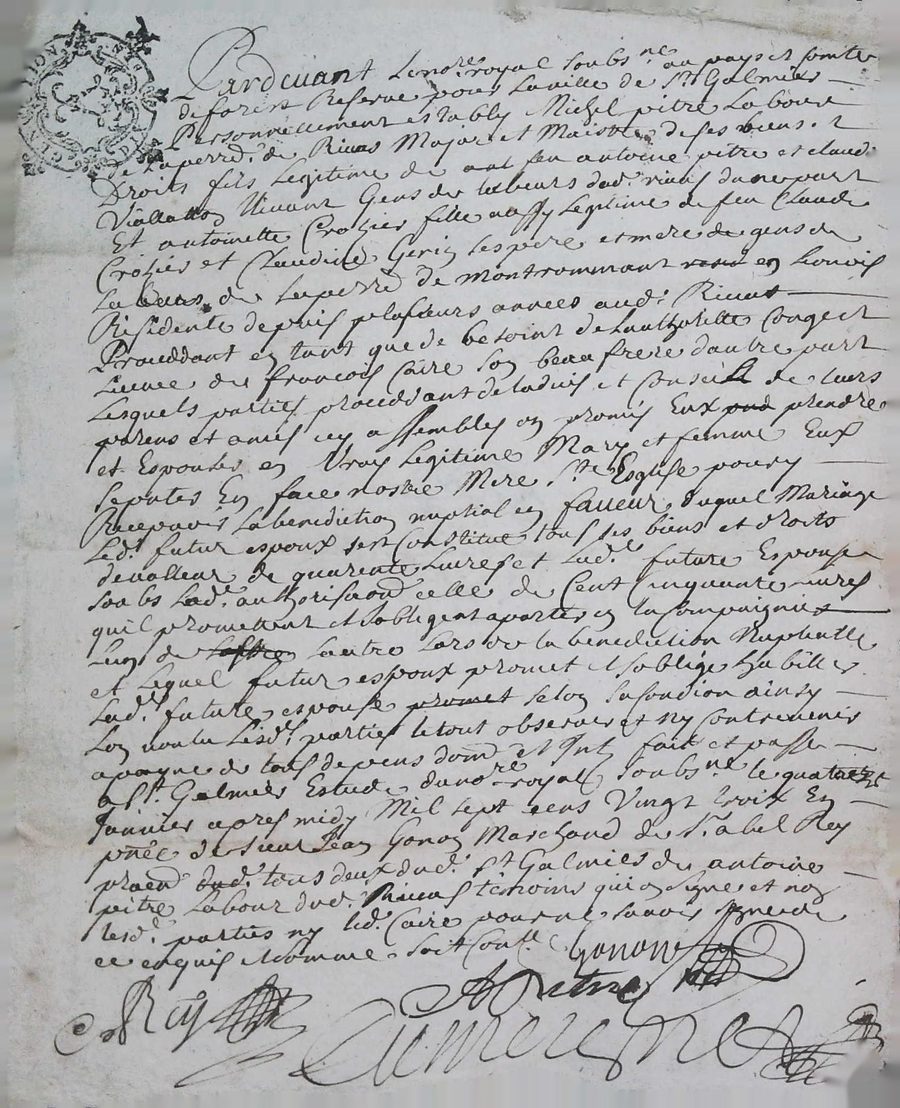 Pardevant Lenore royal Soubsne au pays et Comte
de forest Reserve pour Laville de St Galmier
Personnellement estably Michel pitre Laboure
de Laperrd. de Rivas Majeur et Maistre de ses biens et
Droits fils Legitime de feu antoine pitre et claud
Viallatton Vivant Gens de Labeurs dud. rivas dune part
Et antoinette Crozier fille Legitime de feu Claude
Crozier et Claudine Gerin ses pere et mere gens de
Labeur de Laperrd de Montrommant en Lionois
Residente depuis plusieurs annees aud. Rivas
Proceddant en tant que de besoint de Lauthoritte Conget et
Licence de francois Caire Son beau frere dautre part
Lesquels parties proceddant de Ladvis et Conseil de Leurs
parens et amis icy assembles on promis Eux prendre
et Espouser en Vray Legitime Mary et femme Eux
Separtes En face nostre Mere Ste Esglise pour y
Recepvoir La benediction nuptial en faveur duquel Mariage
Led. futur espoux sest Constitue tous ses biens et droits
de valleur de quarente Livres et Lad. future Espouse
soubs Lad. authorisaond celle de Cent Cinquante Livres
quil promettent et soblige apporter en la Compaignie
Lun de Lautre Lors de la benediction Nuptialle
et Lequel futur espoux promet et soblige habiller
Lad. future espouse promet selon sa Condion ainsy
Lon voulu Lesd. parties le tout observer et ny Contrevenir
a payne de tous depens dom et Int fait et passe
a St. Galmier Estude dunore royal Soubsne le quatre
Janvier apres midy Mil sept cens Vingt trois En
pnce de sieur Jean Gonon Marchand de Sr. abel Rey
dud. tous deux dud. St Galmier de antoine
pitre Labour dud. Rivas temoins qui on signe et non
Lesd. parties ny Led. Caire pour ne savoir signe de
ce enquis et somme soit Conlle Gonon
A Pitre
Rey